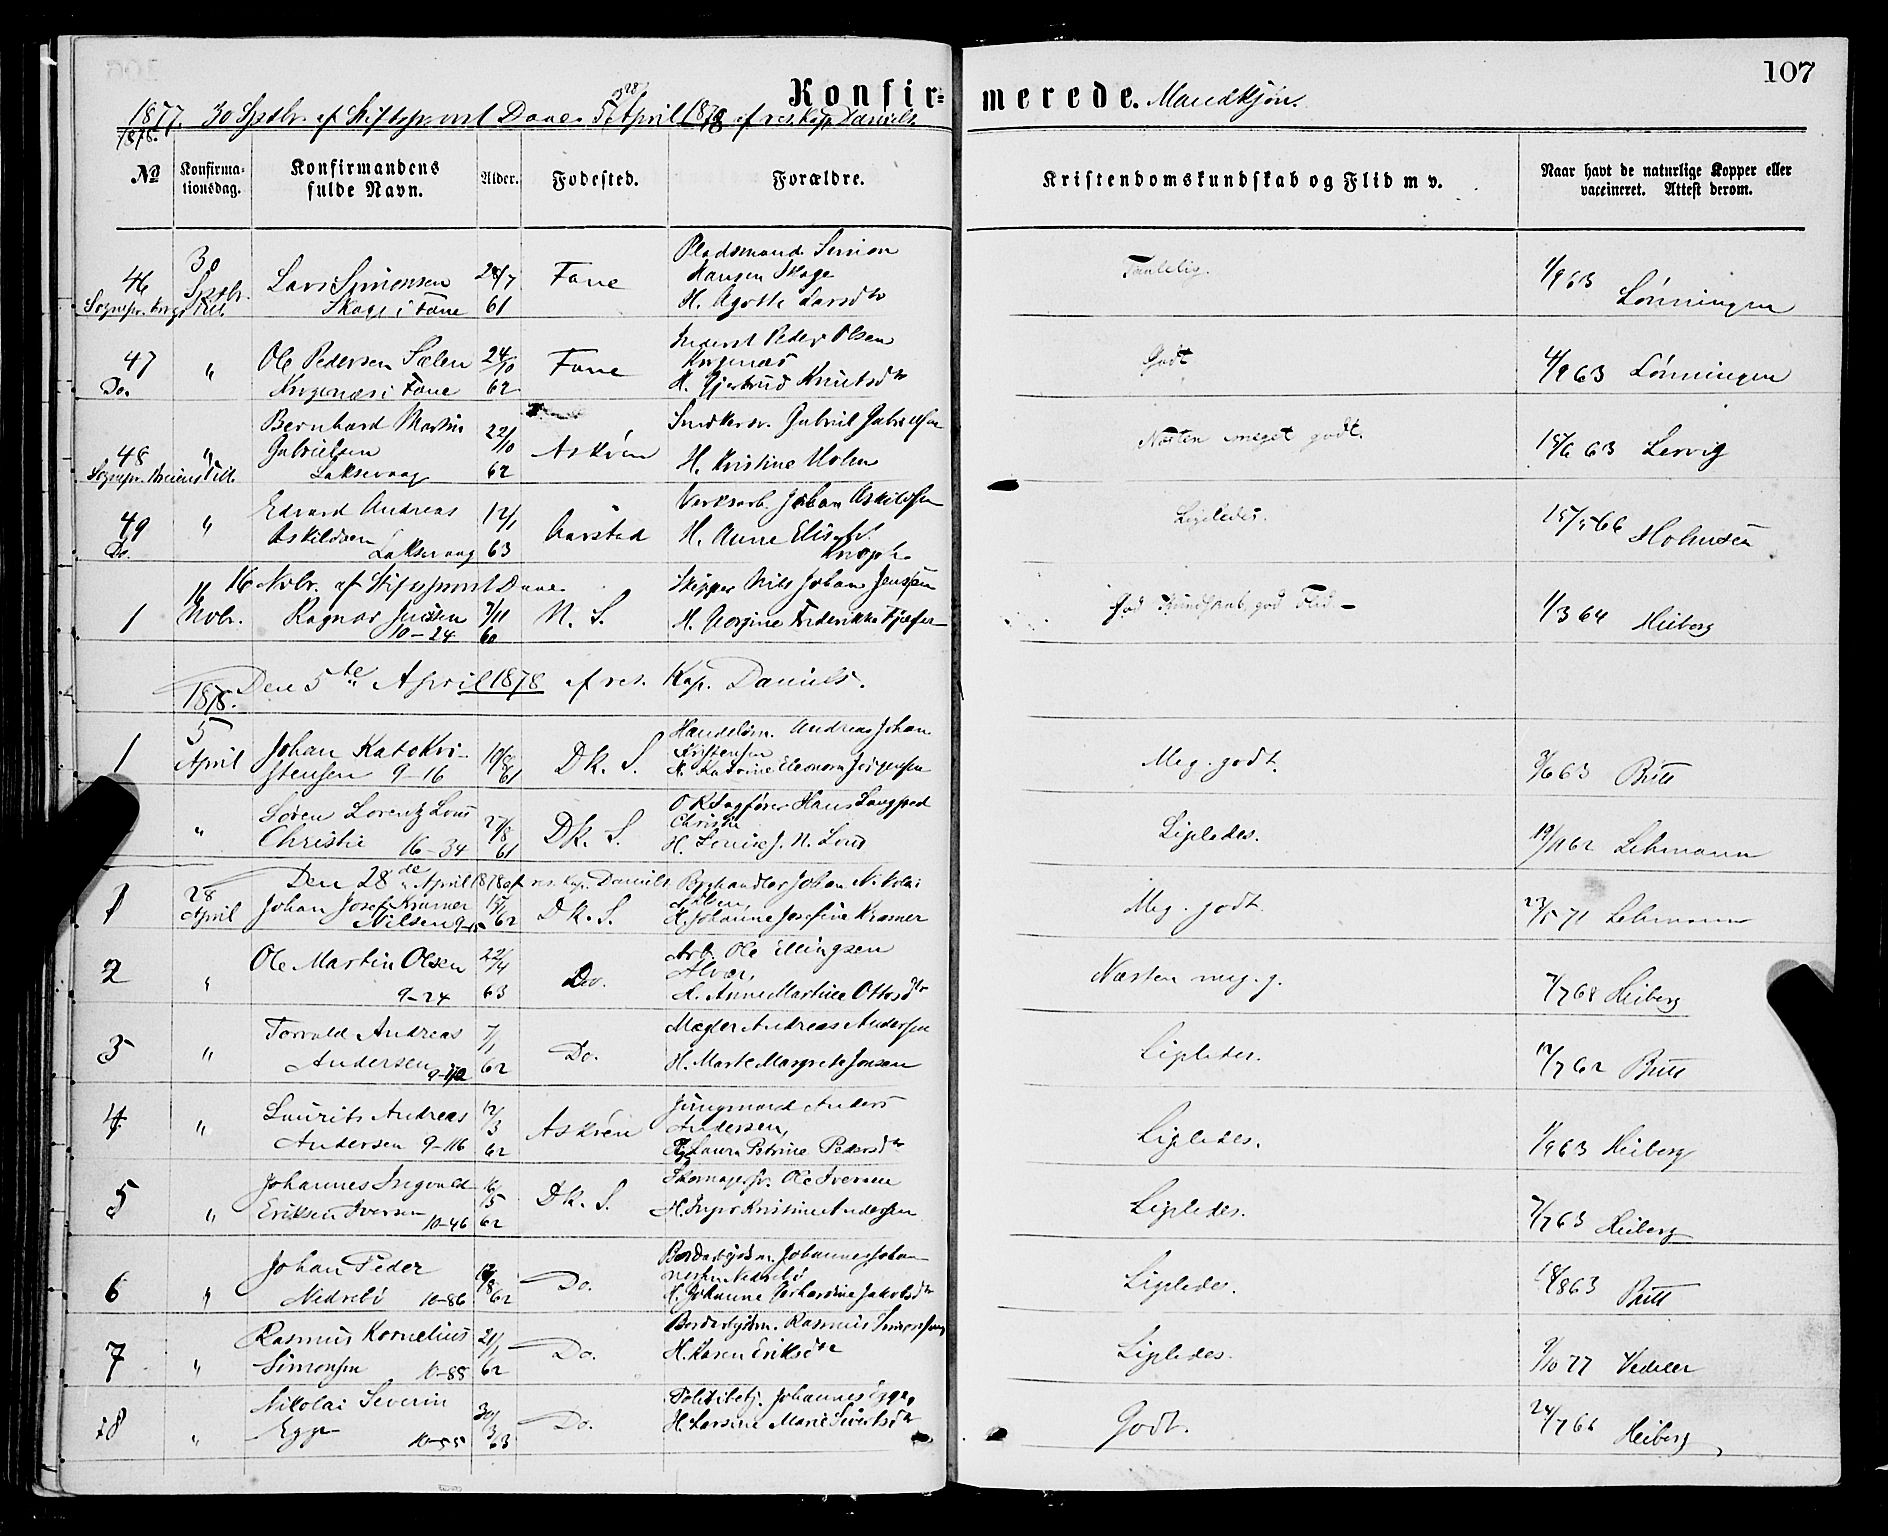 107
Konfir= merede. Mandkjøn.
1877 30 Sptbr. af Stiftsprovst Daae. 5 April 1878 af res. Kap. Daniels.
1878.
No Konfirma-tionsdag. Konfirmandens fulde Navn. Alder. Fødested. Forældre. Kristendomskundskab og Flid m v. Naar havt de naturlige Kopper eller vaccineret. Attest derom.
46 30 Sptbr. Lars Simonsen 28/7 Fane Pladsmand Simon
Skage i Fane 61 Hansen Skage
H. Agothe Larsdtr
Taalelig. 1/9 63 Lønningen
47 " Ole Pedersen Sælen 24/10 Fane Inderst Peder Olsen
Do. i Fane 62 H. Gjertrud Knutsdtr
Godt 4/9 63 Lønningen
48 " Bernhard Martin 22/10 Askøen Gabriel Gabrielsen
Gabrielsen
Laksevaag 62 H. Kristine Holm
Næsten meget godt. 18/6 63 Lervig
49 " Edvard Andreas 12/1 Aarstad Johan Askildsen
Do. Askildsen Laksevaag 63 H. Anne Elisab.
Ligeledes. 15/5 66
16 Nvbr. af Stiftsprovst Daae.
1 16 Nvbr. Ragnar Jenssen 7/11 N. S. Skipper Nils Johan Jenssen
10-24 60 H. Georgine Frederikke
God Kundskab, god Flid 1/3 64 Heiberg
1878. Den 5te April 1878 af res. Kap. Daniels.
1 5 April Johan Kato Kri- 19/8 Dk. S. Handelsm. Andreas Johan
stensen 9-16 61 Kristensen
H. Katrine Eleonora Jørgensen
Meg. godt. 9/6 63 Britt
" Søren Lorentz Lous 27/8 Dk. S. O R Sagfører Hans Langsted
Christie 16-34 61 Christie
H. Louise J. N. Lous
Ligeledes. 19/9 62 Lehmann
Den 28de April 1878 af res. Kap. Daniels
1 28 April Johan Josef Kramer 15/7 Dk. S. Johan Nikolai
Nilsen 62 Nilsen,
H. Johanne Josefine Kramer
Meg. godt. 23/5 71 Lehmann
2 " Ole Martin Olsen 22/4 Do. Arb. Ole Ellingsen
9-24 63 Alver,
H. Anne Martine Ottosdtr
Næsten meg. g. 7/7 68 Heiberg
3 " Torvald Andreas 7/1 Do. Mægler Andreas Andersen
Andersen 62 H. Marte Margrete Jonsen
Ligeledes. 12/7 62 Britt
4 " Laurits Andreas 12/3 Askøen Jungmand Anders
Andersen 9-116 62 Andersen,
H. Laura Petrine Pedersdtr
Ligeledes. 1/9 63 Heiberg
5 " Johannes Ingvald 16/5 Dk. S. Ole Iversen
Eriksen Iversen 10-46 62 H. Kristine Andersen
Ligeledes. 7/7 63 Heiberg
6 " Johan Peder 12/8 Do. Johannes Johan-
Nedrebø 10-86 62 nesen Nedrebø
H. Johanne Gerhardine Jakobsdtr
Ligeledes. 18/8 63 Britt
7 " Rasmus Kornelius 21/1 Do. Rasmus Simonsen
Simonsen 10-85 62 H. Karen Eriksdtr
Ligeledes. 9/10 77 Vedeler
8 " Nikolai Severin 30/3 Do. Politibetj. Johannes Egge,
Egge 10-55 63 H. Larsine Marie Sivertsdtr
Godt. 24/7 66 Heiberg